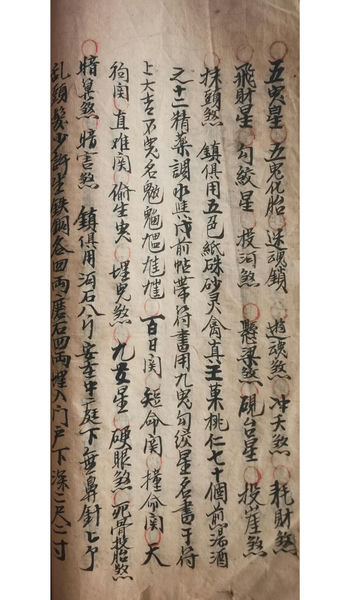 五鬼星 五鬼化胎 迷魂鎖 遊魂煞 冲天煞 耗財煞
飛財星 勾絞星 投河煞 懸梁煞 硯台星 投崖煞
抹頭煞 鎮俱用五色紙硃砂灵禽真王菓桃仁七十個煎湯酒
之十二精藥調水兴戊前帖帶符書用九鬼勾絞星名書于符
上大吉不鬼名魁
百日関 短命関 撞命関 天
狗関 直难関 偷生鬼 埋兒煞 九良星 硬眼煞 犯骨投胎煞
暗鼻煞 暗害煞 鎮俱用河石八斤安在中庭下無鼻針七个
乱頭髮少許生鉄鋼各四両磨石四両埋入门户下深二尺二寸